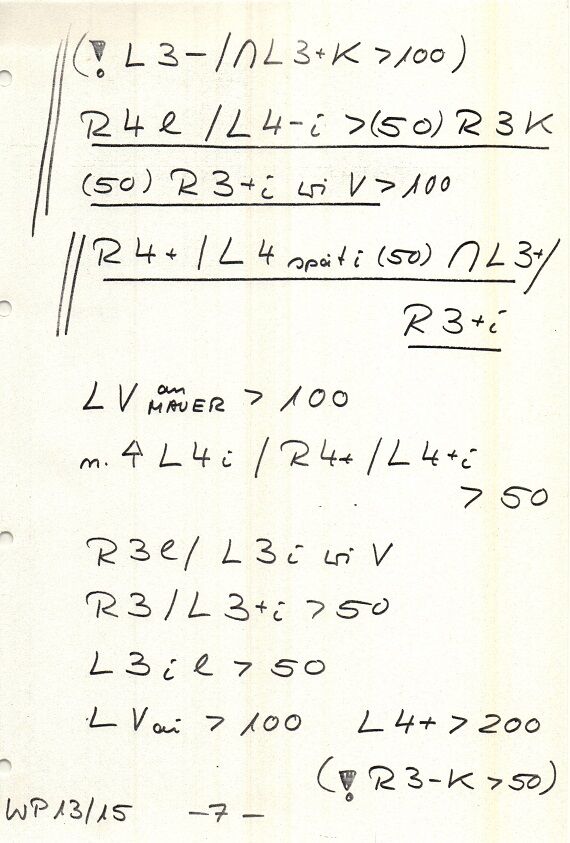 (! L3-/∩L3+K >100)
R4l /L4-i >(50) R3K
(50) R3+i wi V >100
R4+ /L4 späti (50) ∩L3+/
R3+i
LV an MAUER > 100
n. ↑ L4i / R4+ /L4+i
> 50
R3l/ L3i wi V
R3/L3+i >50
L3il >50
LVai >100 L4+ >200
(! R3-K >50)
WP13/15 -7-